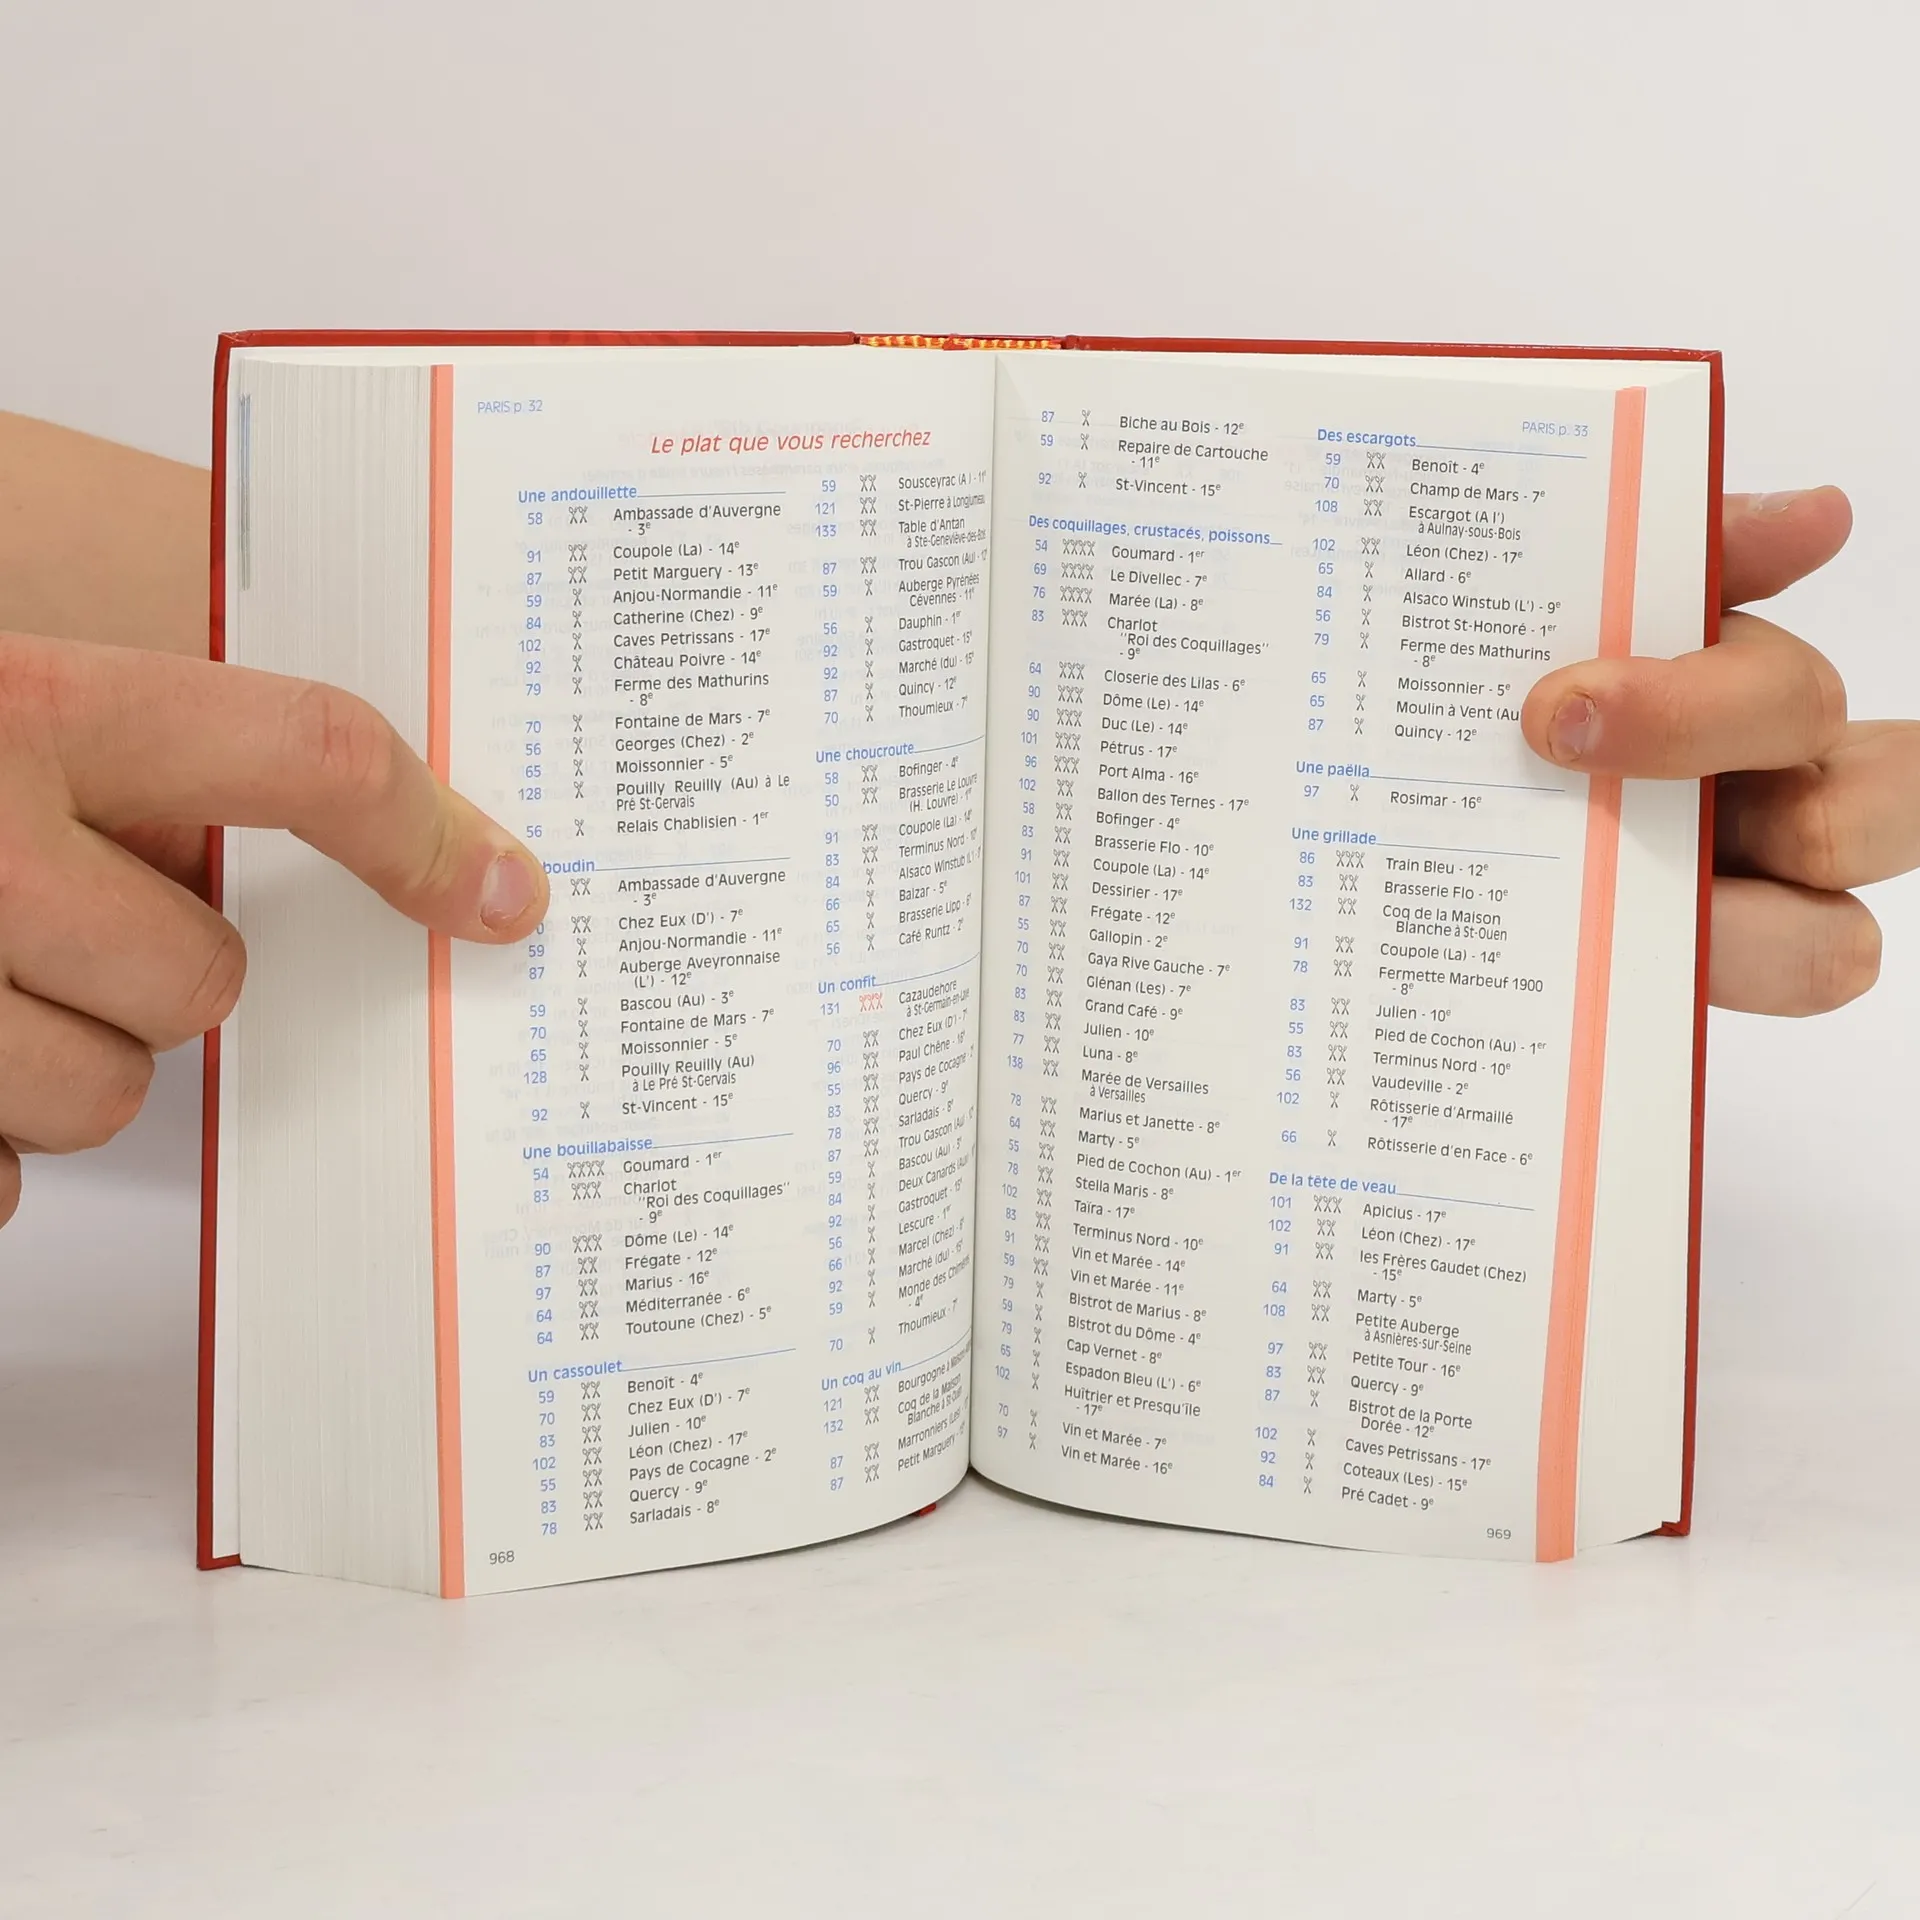 PARIS p. 32
Le plat que vous recherchez
Une andouillette
58 Ambassade d'Auvergne
- 3e
91 Coupole (La) - 14e
87 Petit Marguery - 13e
59 Anjou-Normandie - 11e
84 Catherine (Chez) - 9e
102 Caves Petrissans - 17e
92 Château Poivre - 14e
79 Ferme des Mathurins
- 8e
70 Fontaine de Mars - 7e
56 Georges (Chez) - 2e
65 Moissonnier - 5e
128 Pouilly Reuilly (Au) à Le
Pré St-Gervais
56 Relais Chablisien - 1er
boudin
Ambassade d'Auvergne
- 3e
0 Chez Eux (D') - 7e
59 Anjou-Normandie - 11e
87 Auberge Aveyronnaise
(L') - 12e
59 Bascou (Au) - 3e
70 Fontaine de Mars - 7e
65 Moissonnier - 5e
128 Pouilly Reuilly (Au)
à Le Pré St-Gervais
92 St-Vincent - 15e
Une bouillabaisse
54 Goumard - 1er
83 Charlot
"Roi des Coquillages"
- 9e
90 Dôme (Le) - 14e
87 Frégate - 12e
97 Marius - 16e
64 Méditerranée - 6e
64 Toutoune (Chez) - 5e
Un cassoulet
59 Benoît - 4e
70 Chez Eux (D') - 7e
83 Julien - 10e
102 Léon (Chez) - 17e
55 Pays de Cocagne - 2e
83 Quercy - 9e
78 Sarladais - 8e
59 Sousceyrac (A ) - 11e
121 St-Pierre à Longjumeau
133 Table d'Antan
à Ste-Geneviève-des-Bois
87 Trou Gascon (Au) - 12
59 Auberge Pyrénées
Cévennes - 11e
56 Dauphin - 1er
92 Gastroquet - 15e
92 Marché (du) - 15e
87 Quincy - 12e
70 Thoumieux - 7e
Une choucroute
58 Bofinger - 4e
50 Brasserie Le Louvre
(H. Louvre) - 1er
91 Coupole (La) - 14e
83 Terminus Nord - 10e
84 Alsaco Winstub (L')
66 Balzar - 5e
65 Brasserie Lipp - 6e
56 Café Runtz - 2e
Un confit
131 Cazaudehore
à St-Germain-en-Laye
70 Chez Eux (D') - 7e
96 Paul Chêne - 16e
55 Pays de Cocagne - 2e
83 Quercy - 9e
78 Sarladais - 8e
87 Trou Gascon (Au) - 12
59 Bascou (Au) - 3e
84 Deux Canards (Aux)
92 Gastroquet - 15e
56 Lescure - 1er
66 Marcel (Chez) - 6e
92 Marché (du) - 15e
59 Monde des Chimères
- 4e
70 Thoumieux - 7e
Un coq au vin
121 Bourgogne à
132 Coq de la Maison
Blanche à St-Ouen
87 Marronniers (Les)
87 Petit Marguery
968
PARIS p. 33
87 Biche au Bois - 12e
59 Repaire de Cartouche
- 11e
92 St-Vincent - 15e
Des coquillages, crustacés, poissons
54 Goumard - 1er
69 Le Divellec - 7e
76 Marée (La) - 8e
83 Charlot
"Roi des Coquillages"
- 9e
64 Closerie des Lilas - 6e
90 Dôme (Le) - 14e
90 Duc (Le) - 14e
101 Pétrus - 17e
96 Port Alma - 16e
102 Ballon des Ternes - 17e
58 Bofinger - 4e
83 Brasserie Flo - 10e
91 Coupole (La) - 14e
101 Dessirier - 17e
87 Frégate - 12e
55 Gallopin - 2e
70 Gaya Rive Gauche - 7e
70 Glénan (Les) - 7e
83 Grand Café - 9e
83 Julien - 10e
77 Luna - 8e
138 Marée de Versailles
à Versailles
78 Marius et Janette - 8e
64 Marty - 5e
55 Pied de Cochon (Au) - 1er
78 Stella Maris - 8e
102 Taïra - 17e
83 Terminus Nord - 10e
91 Vin et Marée - 14e
59 Vin et Marée - 11e
79 Bistrot de Marius - 8e
59 Bistrot du Dôme - 4e
79 Cap Vernet - 8e
65 Espadon Bleu (L') - 6e
102 Huîtrier et Presqu'île
- 17e
70 Vin et Marée - 7e
97 Vin et Marée - 16e
Des escargots
59 Benoît - 4e
70 Champ de Mars - 7e
108 Escargot (A l')
à Aulnay-sous-Bois
102 Léon (Chez) - 17e
65 Allard - 6e
84 Alsaco Winstub (L') - 9e
56 Bistrot St-Honoré - 1er
79 Ferme des Mathurins
- 8e
65 Moissonnier - 5e
65 Moulin à Vent (Au
87 Quincy - 12e
Une paëlla
97 Rosimar - 16e
Une grillade
86 Train Bleu - 12e
83 Brasserie Flo - 10e
132 Coq de la Maison
Blanche à St-Ouen
91 Coupole (La) - 14e
78 Fermette Marbeuf 1900
- 8e
83 Julien - 10e
55 Pied de Cochon (Au) - 1er
83 Terminus Nord - 10e
56 Vaudeville - 2e
102 Rôtisserie d'Armaillé
- 17e
66 Rôtisserie d'en Face - 6e
De la tête de veau
101 Apicius - 17e
102 Léon (Chez) - 17e
91 les Frères Gaudet (Chez)
- 15e
64 Marty - 5e
108 Petite Auberge
à Asnières-sur-Seine
97 Petite Tour - 16e
83 Quercy - 9e
87 Bistrot de la Porte
Dorée - 12e
102 Caves Petrissans - 17e
92 Coteaux (Les) - 15e
84 Pré Cadet - 9e
969